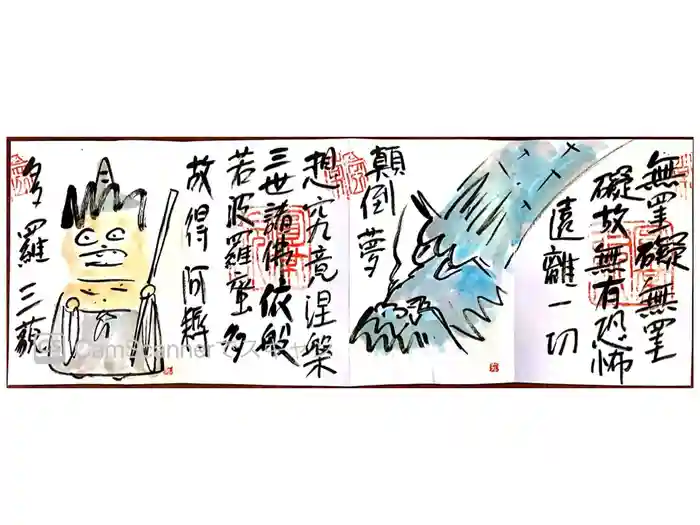 無罣礙無罣
礙故無有恐怖
遠離一切
顛倒夢
想究竟涅槃
三世諸佛依般
若波羅蜜多
故得阿耨
多羅三藐
CamScanner